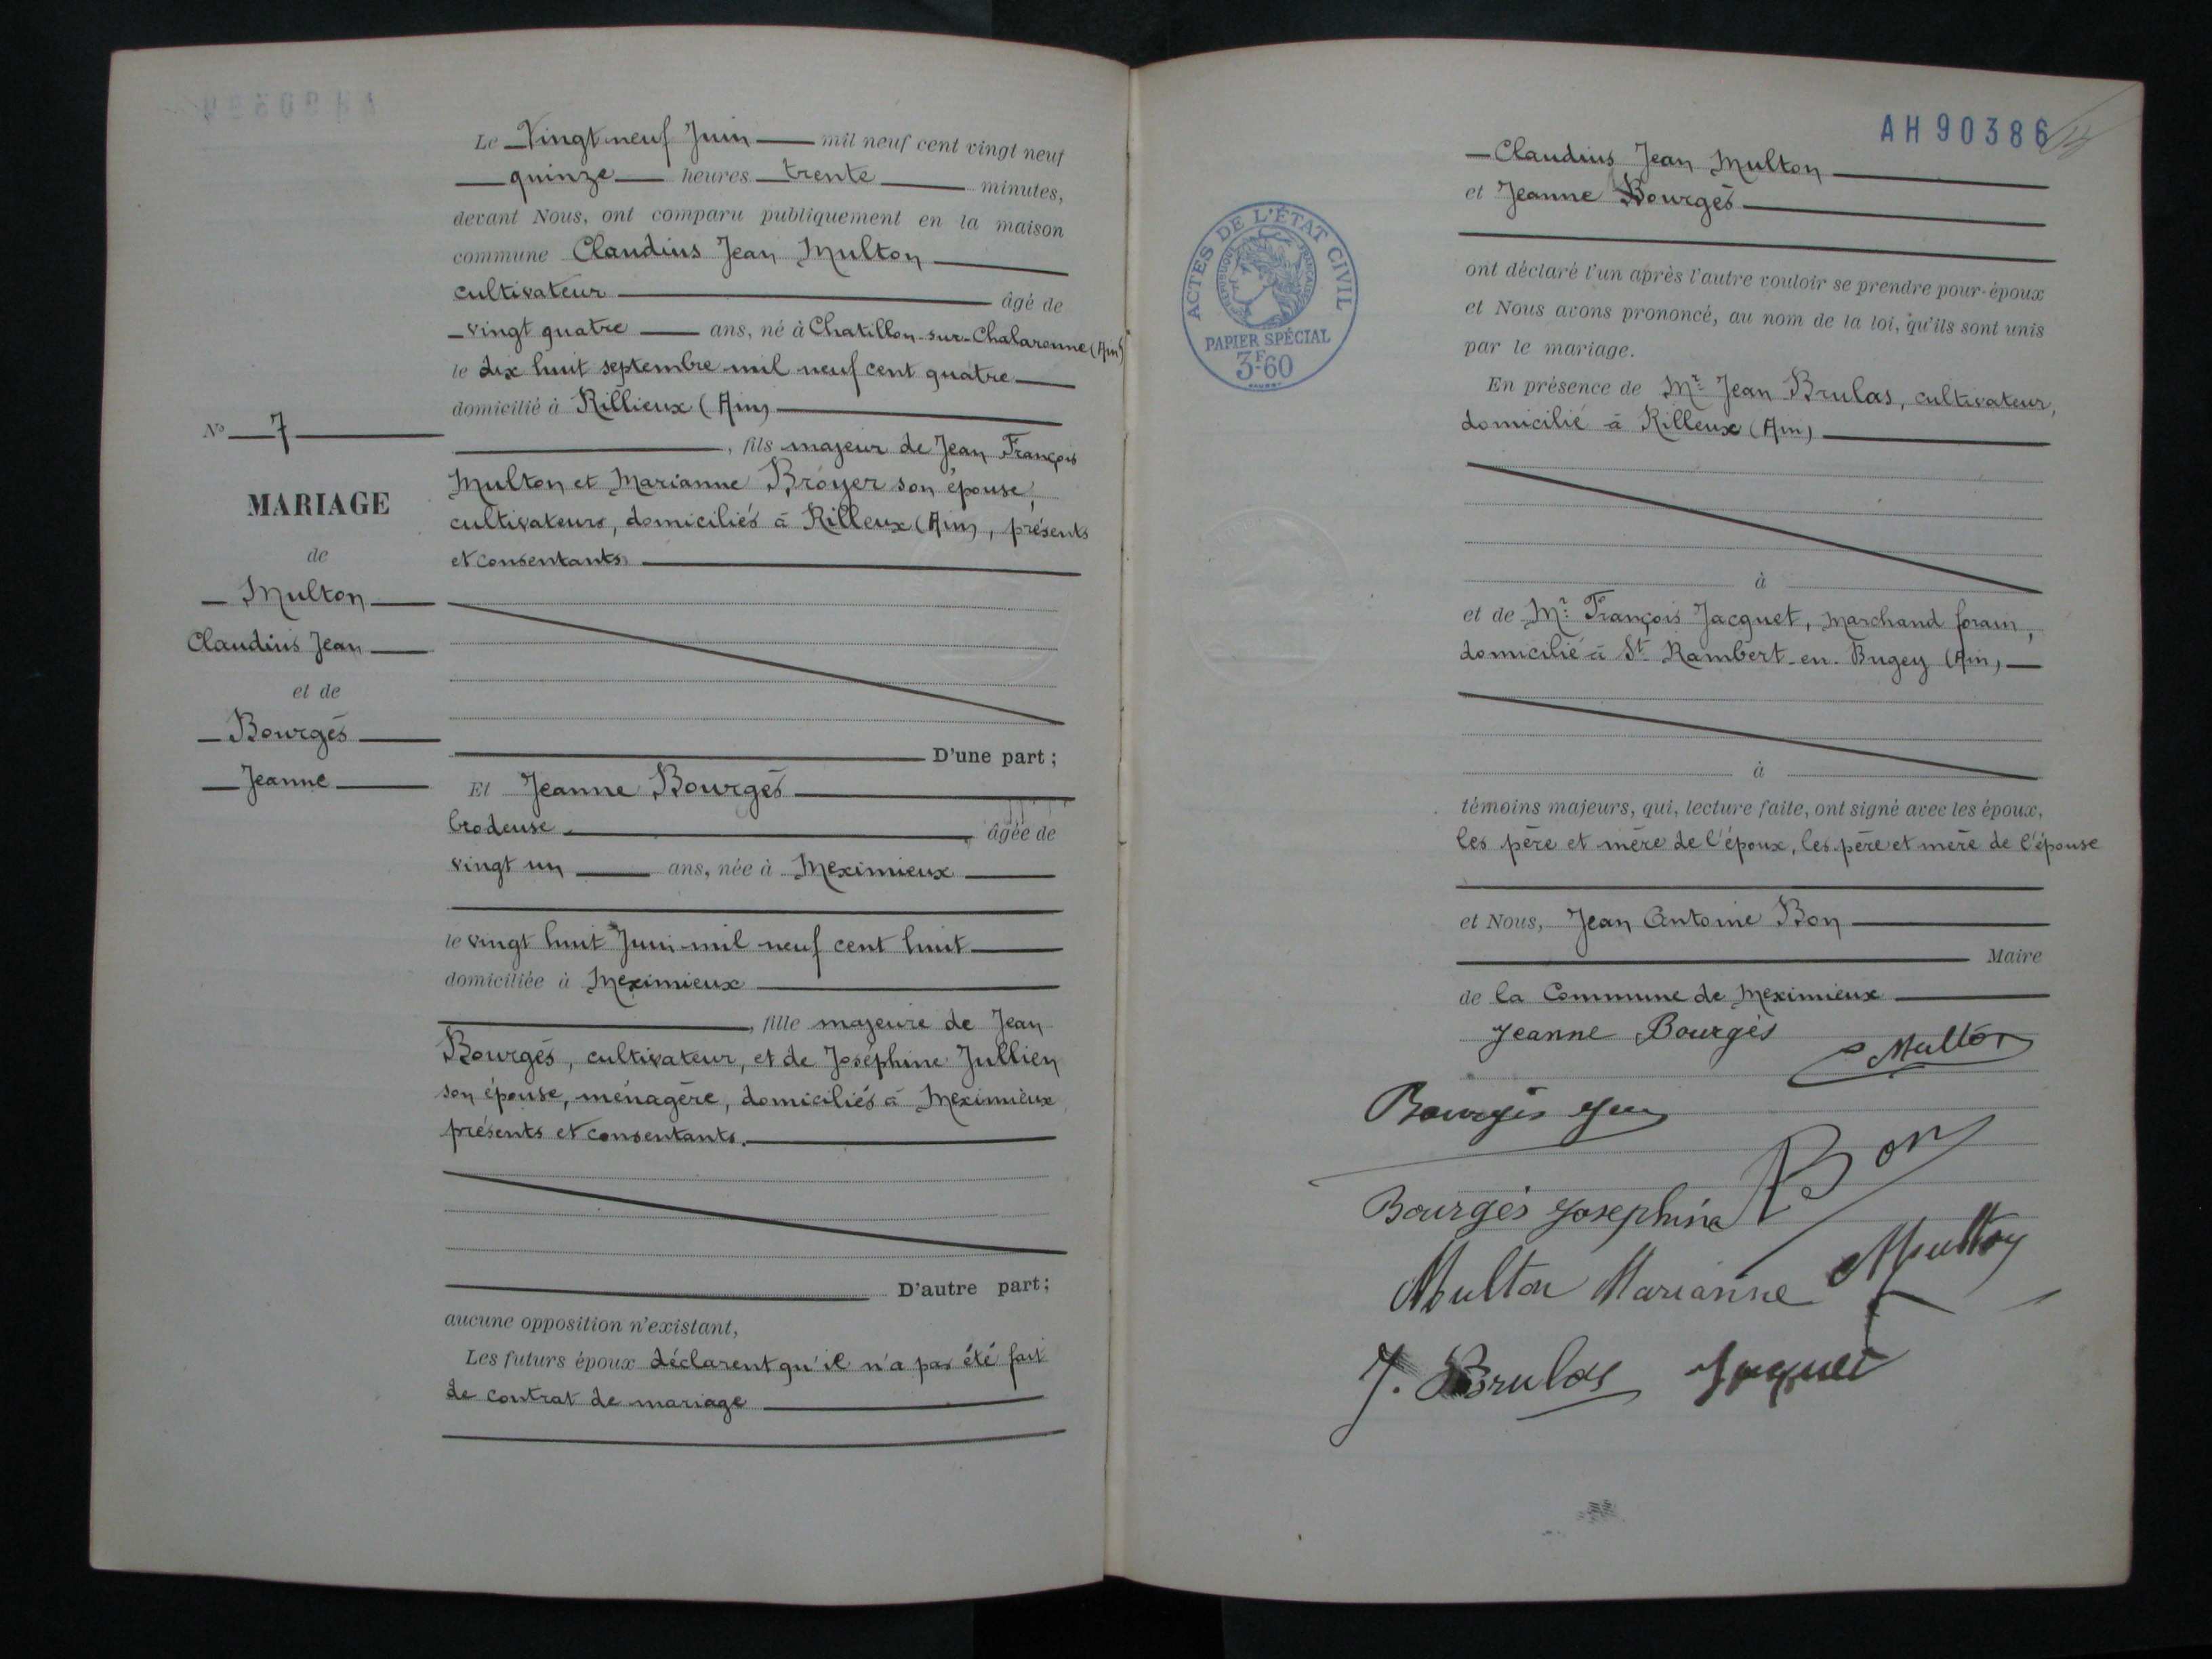 Le Vingt neuf Juin mil neuf cent vingt neuf
quinze heures trente minutes,
devant Nous, ont comparu publiquement en la maison
commune Claudius Jean Multon
cultivateur âgé de
vingt quatre ans, né à Chatillon-sur-Chalaronne (Ain)
le dix huit septembre mil neuf cent quatre
domicilié à Rillieux (Ain)
, fils majeur de Jean François
Multon et Marianne Broyer son épouse,
cultivateurs, domiciliés à Rilleux (Ain), présents
et consentants
D'une part ;
Et Jeanne Bourgès
brodeuse âgée de
vingt un ans, née à Meximieux
le vingt huit Juin mil neuf cent huit
domiciliée à Meximieux
, fille majeure de Jean
Bourgès, cultivateur, et de Joséphine Jullien
son épouse, ménagère, domiciliés à Meximieux
présents et consentants.
D'autre part ;
aucune opposition n'existant,
Les futurs époux déclarent qu'il n'a pas été fait
de contrat de mariage
No 7
MARIAGE
de
Multon
Claudius Jean
et de
Bourgès
Jeanne
AH90386
ACTES DE L'ÉTAT CIVIL
RÉPUBLIQUE FRANÇAISE
PAPIER SPÉCIAL
3F60
Claudius Jean Multon
et Jeanne Bourgès
ont déclaré l'un après l'autre vouloir se prendre pour époux
et Nous avons prononcé, au nom de la loi, qu'ils sont unis
par le mariage.
En présence de Mr Jean Brulas, cultivateur,
domicilié à Rilleux (Ain)
à
et de Mr François Jacquet, Marchand forain,
domicilié à St Rambert-en-Bugey (Ain)
à
témoins majeurs, qui, lecture faite, ont signé avec les époux,
les père et mère de l'époux, les père et mère de l'épouse
et Nous, Jean Antoine Bon
Maire
de la Commune de Meximieux
Jeanne Bourgès
C Multon
Bourgès Jean
Bon
Bourgès Josephine
Multon Marianne Multon
J. Brulas Jaquet